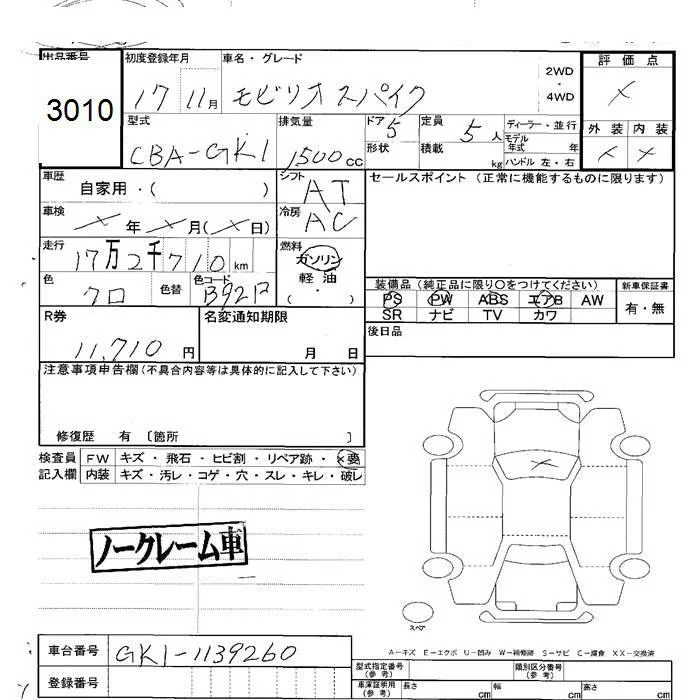 出品番号 初度登録年月 車名・グレード 2WD・4WD 評価点
3010 17 11月 モビリオスパイク ×
型式 排気量 ドア 5 定員 5人 ディーラー・並行 外装 内装
CBA-GK1 1500cc 形状 積載 kg モデル年式 年 × ×
ハンドル 左・右
車歴 自家用・( ) シフト AT セールスポイント (正常に機能するものに限ります)
車検 ×年×月(×日) 冷房 AC
走行 17万2千710km 燃料 ガソリン
軽油
( ・ )
色 クロ 色替 色コード B92P 装備品 (純正品に限り○をつけてください) 新車保証書
PS PW ABS エアB AW 有・無
SR ナビ TV カワ
R券 名変通知期限 後日品
11,710円 月 日
注意事項申告欄 (不具合内容等は具体的に記入して下さい)
修復歴 有 〔箇所 〕
検査員 FW キズ・飛石・ヒビ割・リペア跡・×要
記入欄 内装 キズ・汚レ・コゲ・穴・スレ・キレ・破レ
ノークレーム車
スペア
A-キズ E-エクボ U-凹み W-補修跡 S-サビ C-腐食 XX-交換済
車台番号 GK1-1139260
型式指定番号 (参考) 類別区分番号 (参考)
登録番号
車庫証明用 (参考) 長さ cm 幅 cm 高さ cm